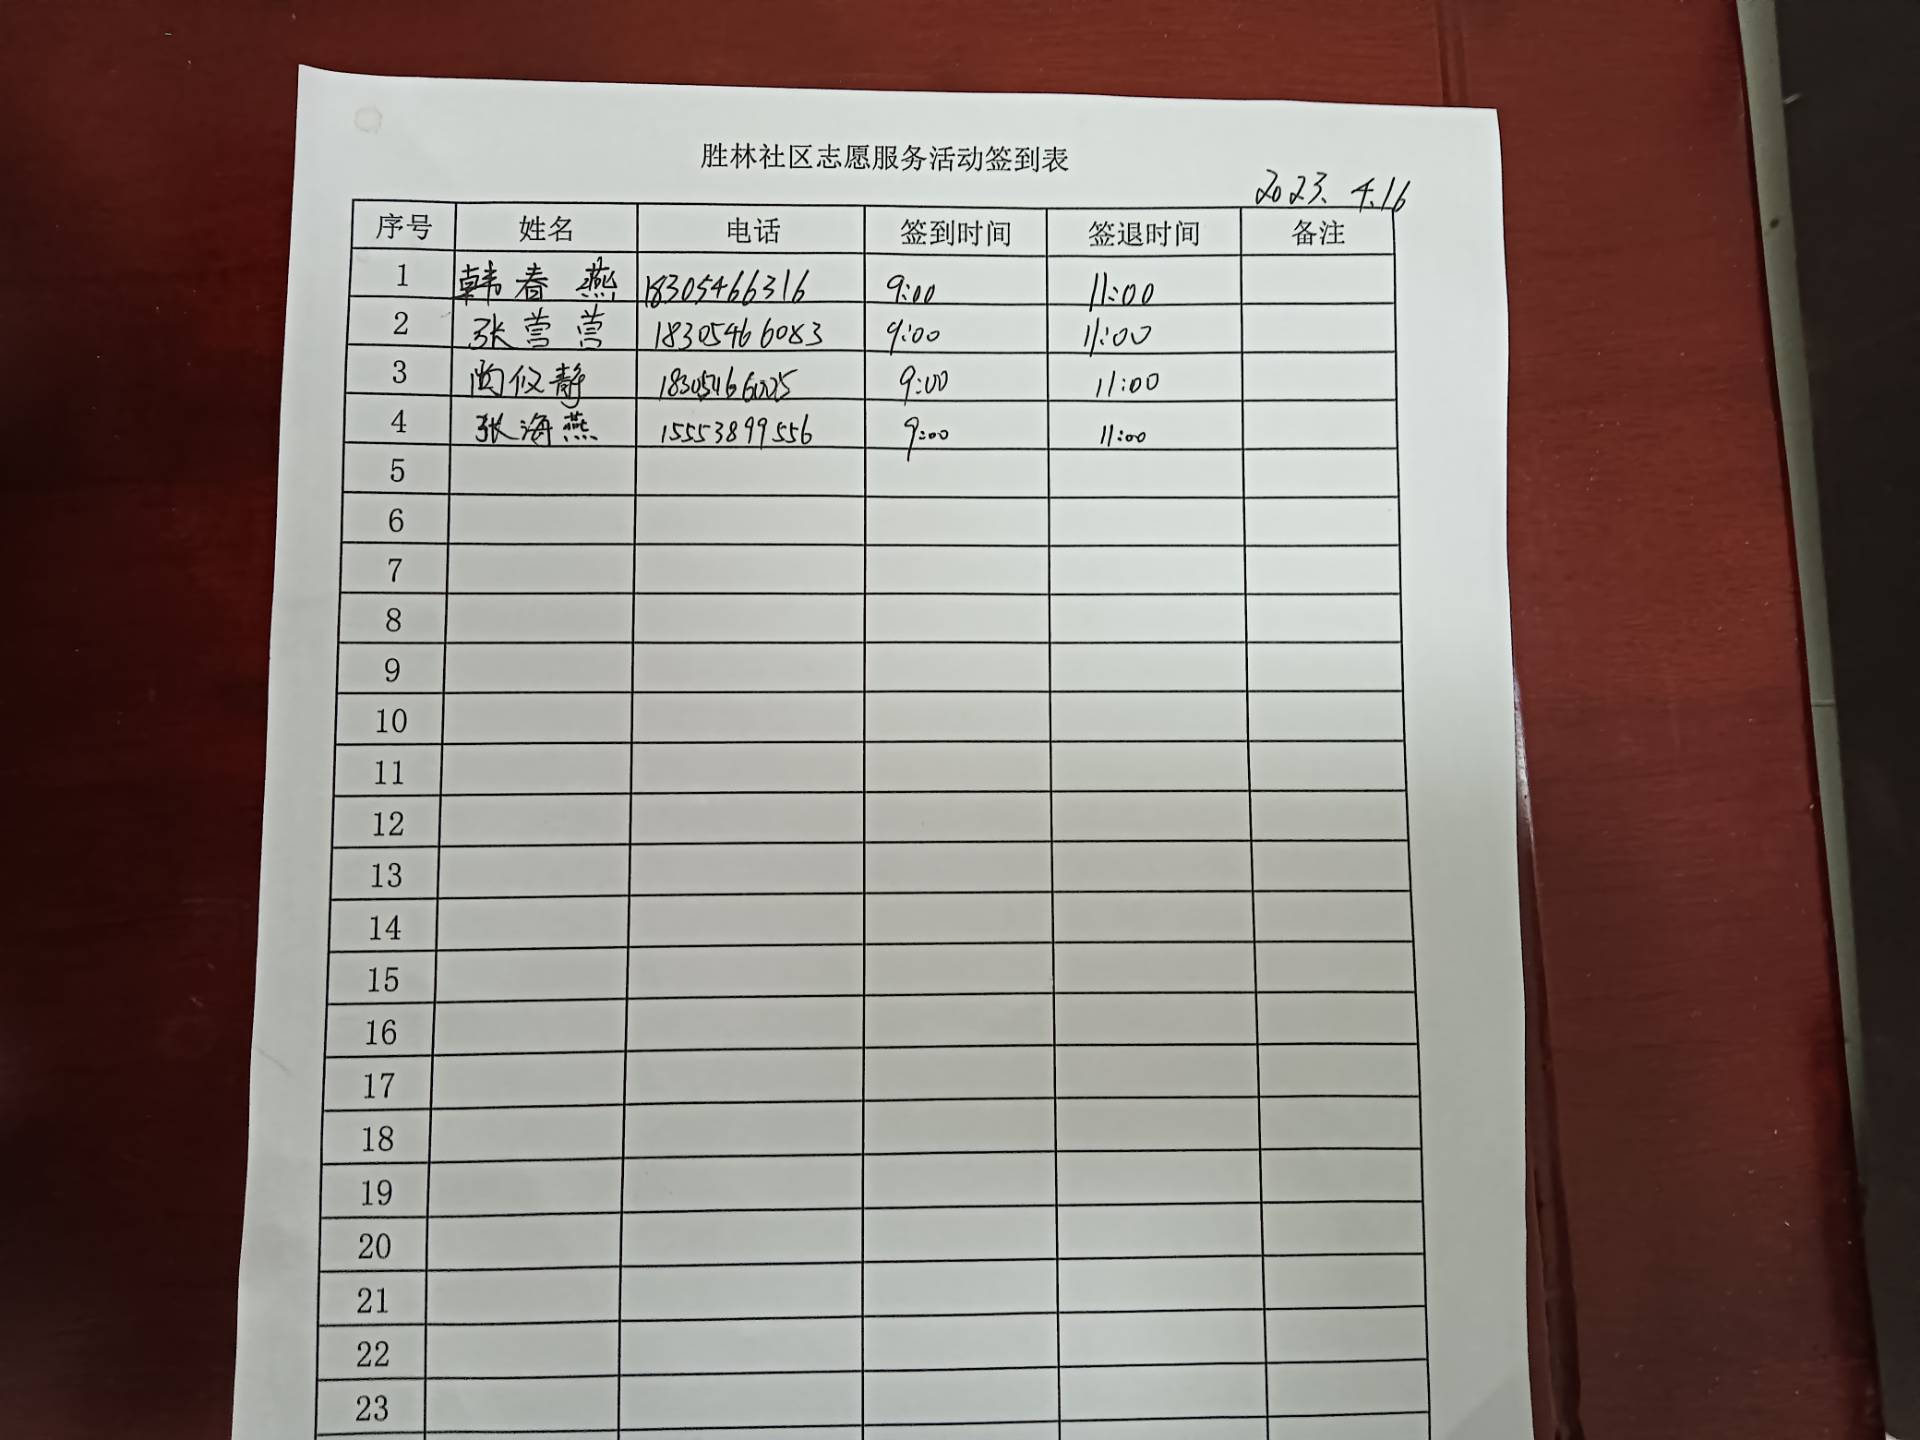 胜林社区志愿服务活动签到表
2023. 4.16
序号 姓名 电话 签到时间 签退时间 备注
1 韩春燕 18305466316 9:00 11:00
2 张营营 18305466083 9:00 11:00
3 静 9:00 11:00
4 张海燕 15553899556 9:00 11:00
5
6
7
8
9
10
11
12
13
14
15
16
17
18
19
20
21
22
23